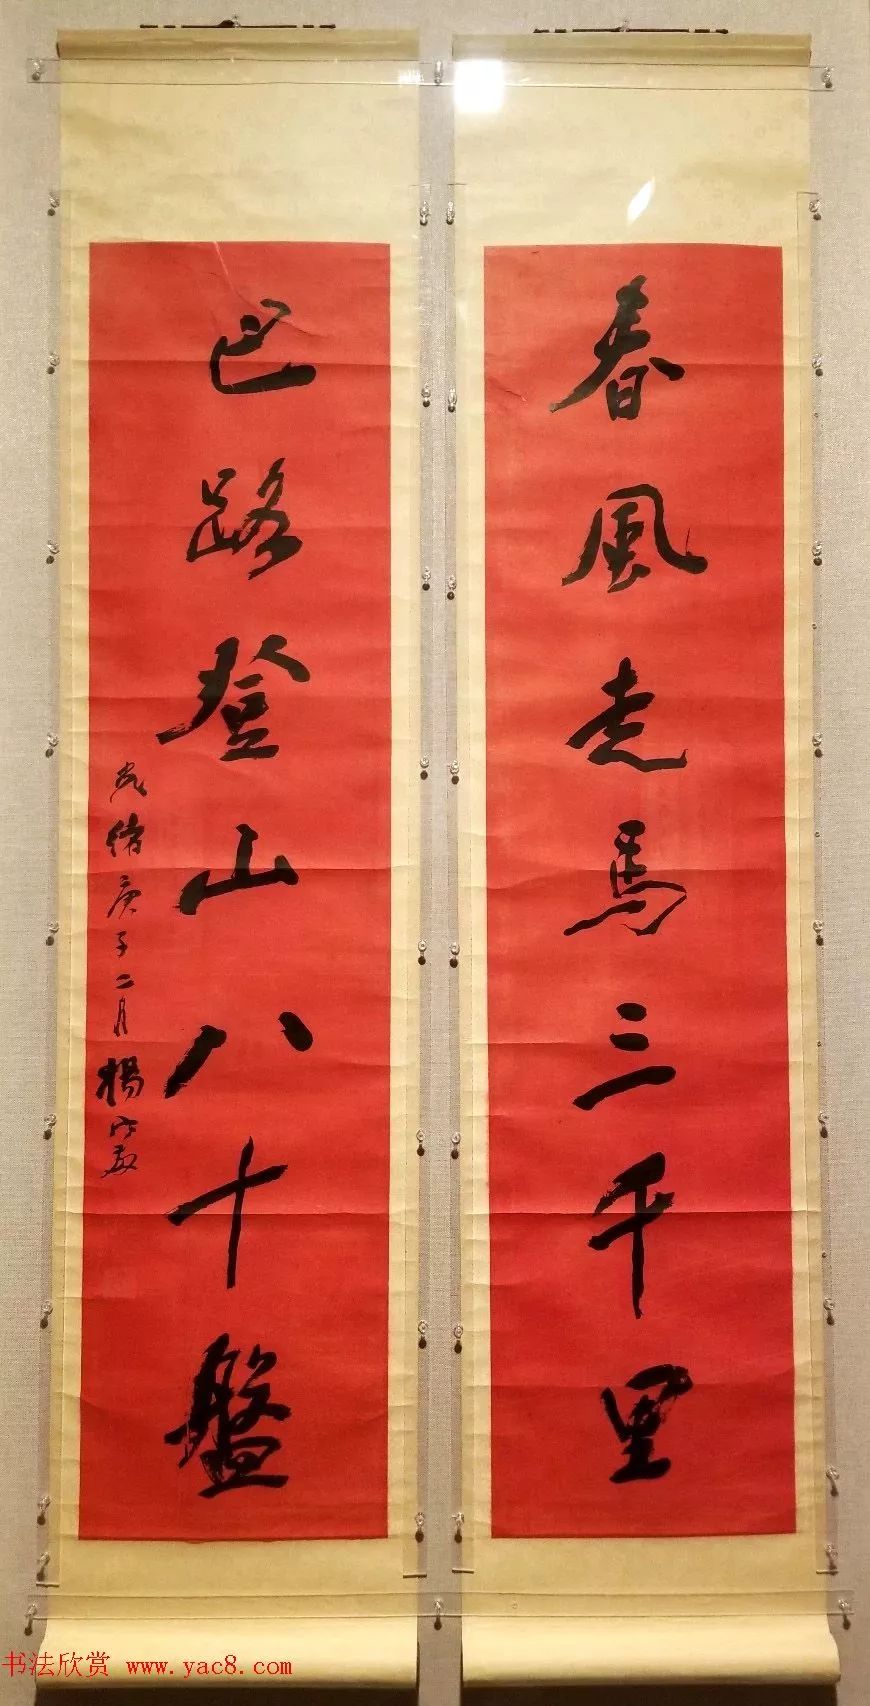 春風走馬三千里
巴路登山八十盤
光緒庚子二月楊守敬
书法欣赏 www.yac8.com